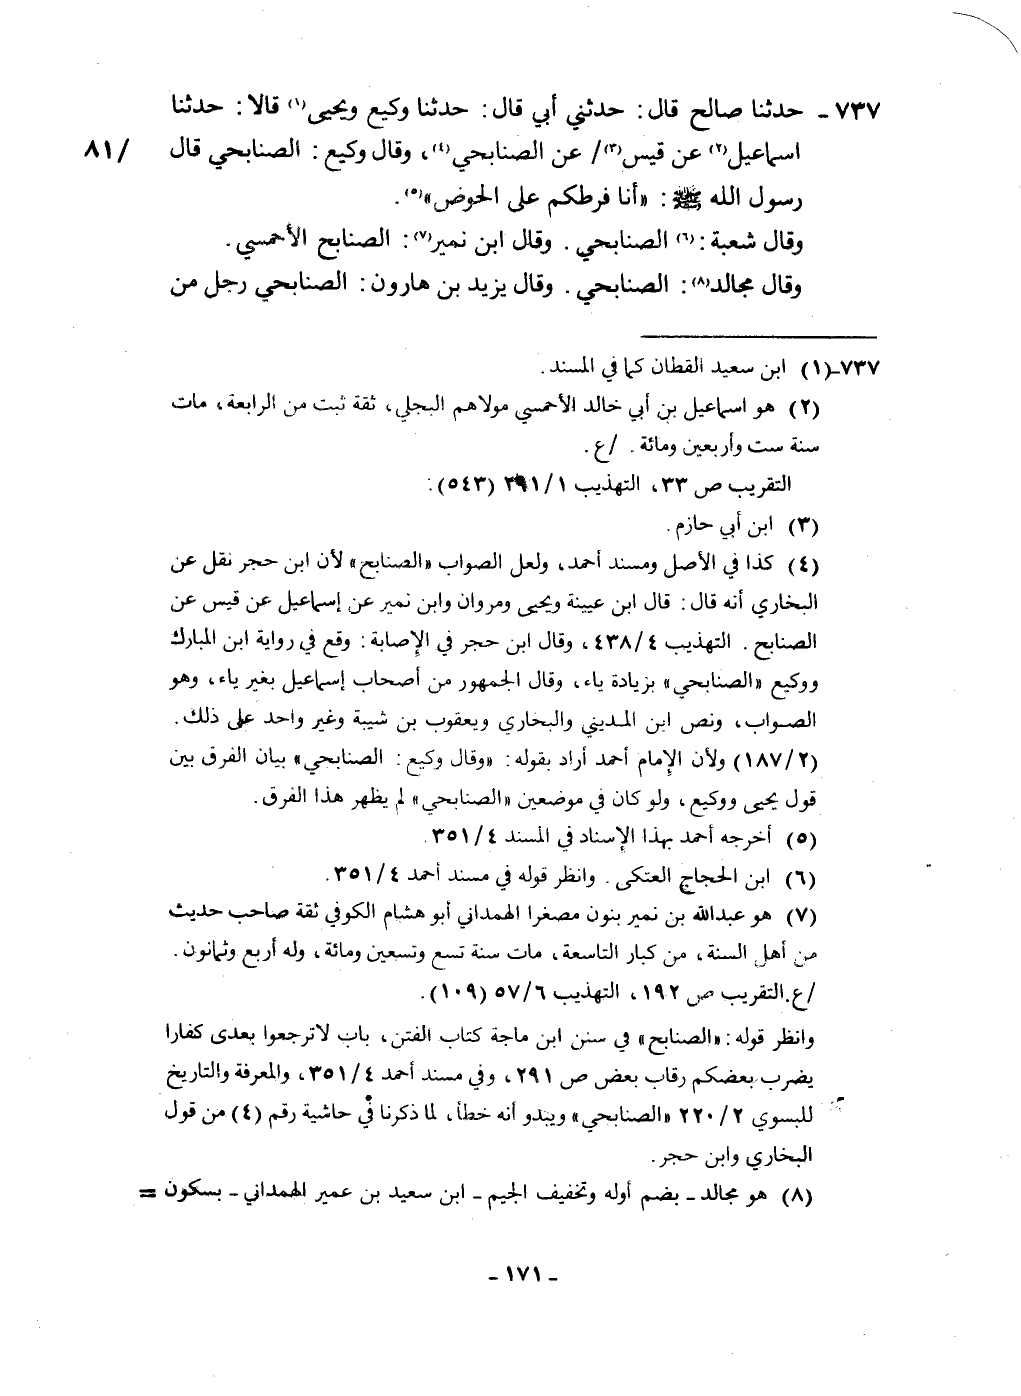 ٧٣٧ ـ حدثنا صالح قال : حدثني أبي قال : حدثنا وكيع ويحيى(١) قالا : حدثنا
اسماعيل(٢) عن قيس(٣)/ عن الصنابحي(٤)، وقال وكيع : الصنابحي قال /٨١
رسول الله ﷺ : «أنا فرطكم على الحوض»(٥).
وقال شعبة :(٦) الصنابحي . وقال ابن نمير(٧) : الصنابح الأحمسي .
وقال مجالد(٨) : الصنابحي . وقال يزيد بن هارون : الصنابحي رجل من
٧٣٧ـ(١) ابن سعيد القطان كما في المسند .
(٢) هو اسماعيل بن أبي خالد الأحمسي مولاهم البجلي، ثقة ثبت من الرابعة، مات
سنة ست وأربعين ومائة . /ع .
التقريب ص ٣٣، التهذيب ٢٩١/١ (٥٤٣) :
(٣) ابن أبي حازم .
(٤) كذا في الأصل ومسند أحمد، ولعل الصواب «الصنابح» لأن ابن حجر نقل عن
البخاري أنه قال : قال ابن عيينة ويحيى ومروان وابن نمير عن إسماعيل عن قيس عن
الصنابح . التهذيب ٤٣٨/٤، وقال ابن حجر في الإصابة : وقع في رواية ابن المبارك
ووكيع «الصنابحي» بزيادة ياء، وقال الجمهور من أصحاب إسماعيل بغير ياء، وهو
الصواب، ونص ابن المديني والبخاري ويعقوب بن شيبة وغير واحد على ذلك .
(١٨٧/٢) ولأن الإمام أحمد أراد بقوله : «وقال وكيع : الصنابحي» بيان الفرق بين
قول يحيى ووكيع، ولو كان في موضعين «الصنابحي» لم يظهر هذا الفرق .
(٥) أخرجه أحمد بهذا الإسناد في المسند ٣٥١/٤
(٦) ابن الحجاج العتكى . وانظر قوله في مسند أحمد ٣٥١/٤ .
(٧) هو عبدالله بن نمير بنون مصغرا الهمداني أبو هشام الكوفي ثقة صاحب حديث
من أهل السنة، من كبار التاسعة، مات سنة تسع وتسعين ومائة، وله أربع وثمانون .
/ع . التقريب ص ١٩٢، التهذيب ٥٧/٦ (١٠٩) .
وانظر قوله : «الصنابح» في سنن ابن ماجة كتاب الفتن، باب لاترجعوا بعدى كفارا
يضرب بعضكم رقاب بعض ص ٢٩١، وفي مسند أحمد ٣٥١/٤، والمعرفة والتاريخ
للبسوي ٢٢٠/٢ «الصنابحي» ويبدو أنه خطأ، لما ذكرنا في حاشية رقم (٤) من قول
البخاري وابن حجر .
(٨) هو مجالد ـ بضم أوله وتخفيف الجيم ـ ابن سعيد بن عمير الهمداني ـ بسكون =
ـ ١٧١ ـ